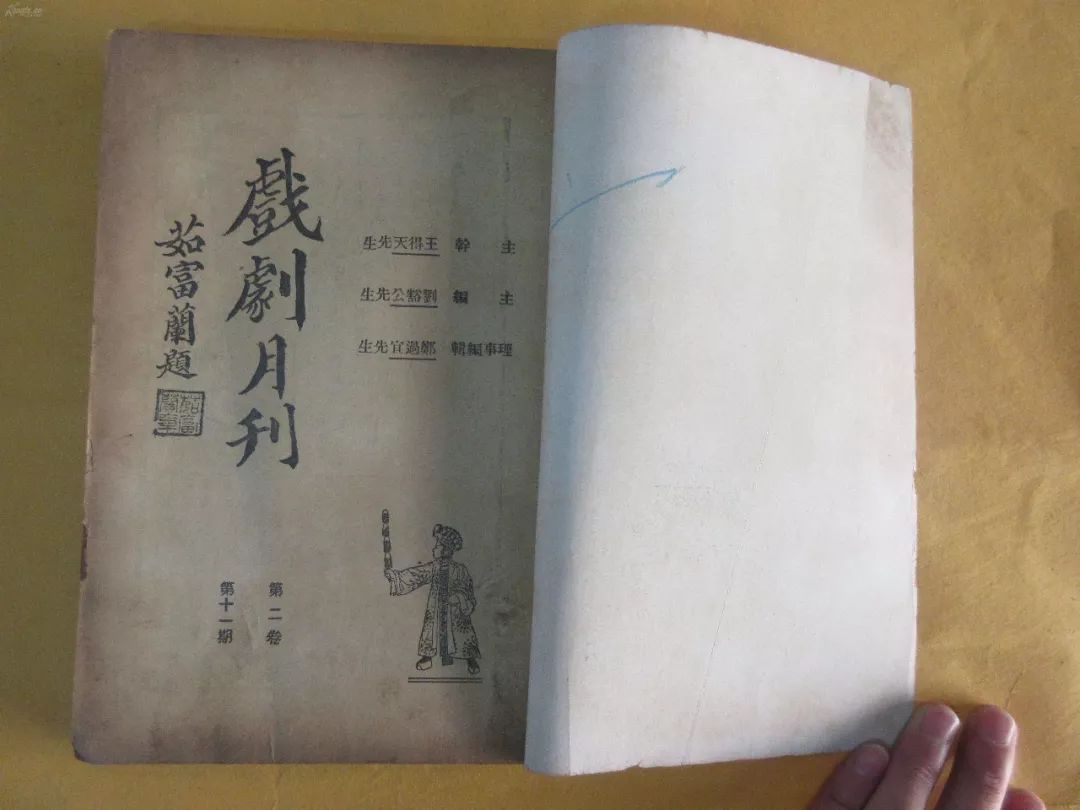 主幹 王得天先生
主編 劉豁公先生
理事編輯 鄭過宜先生
戲劇月刊
茹富蘭題
茹富
蘭章
第二卷
第十一期